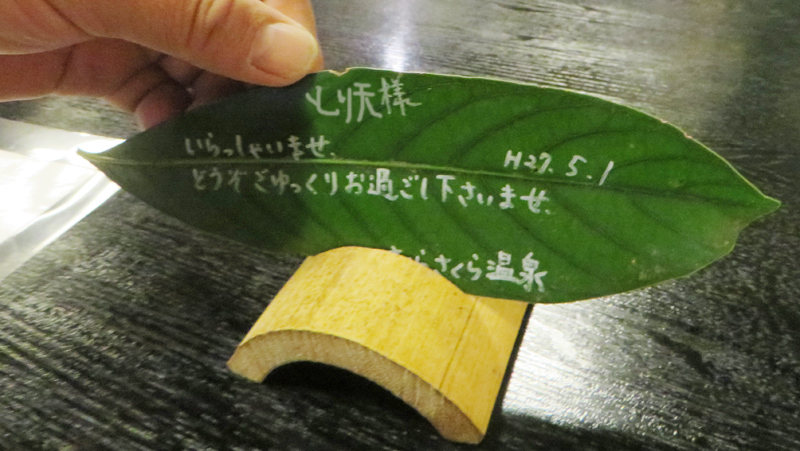 とり天様
いらっしゃいませ、
H27.5.1
どうぞごゆっくりお過ごし下さいませ。
さくら温泉